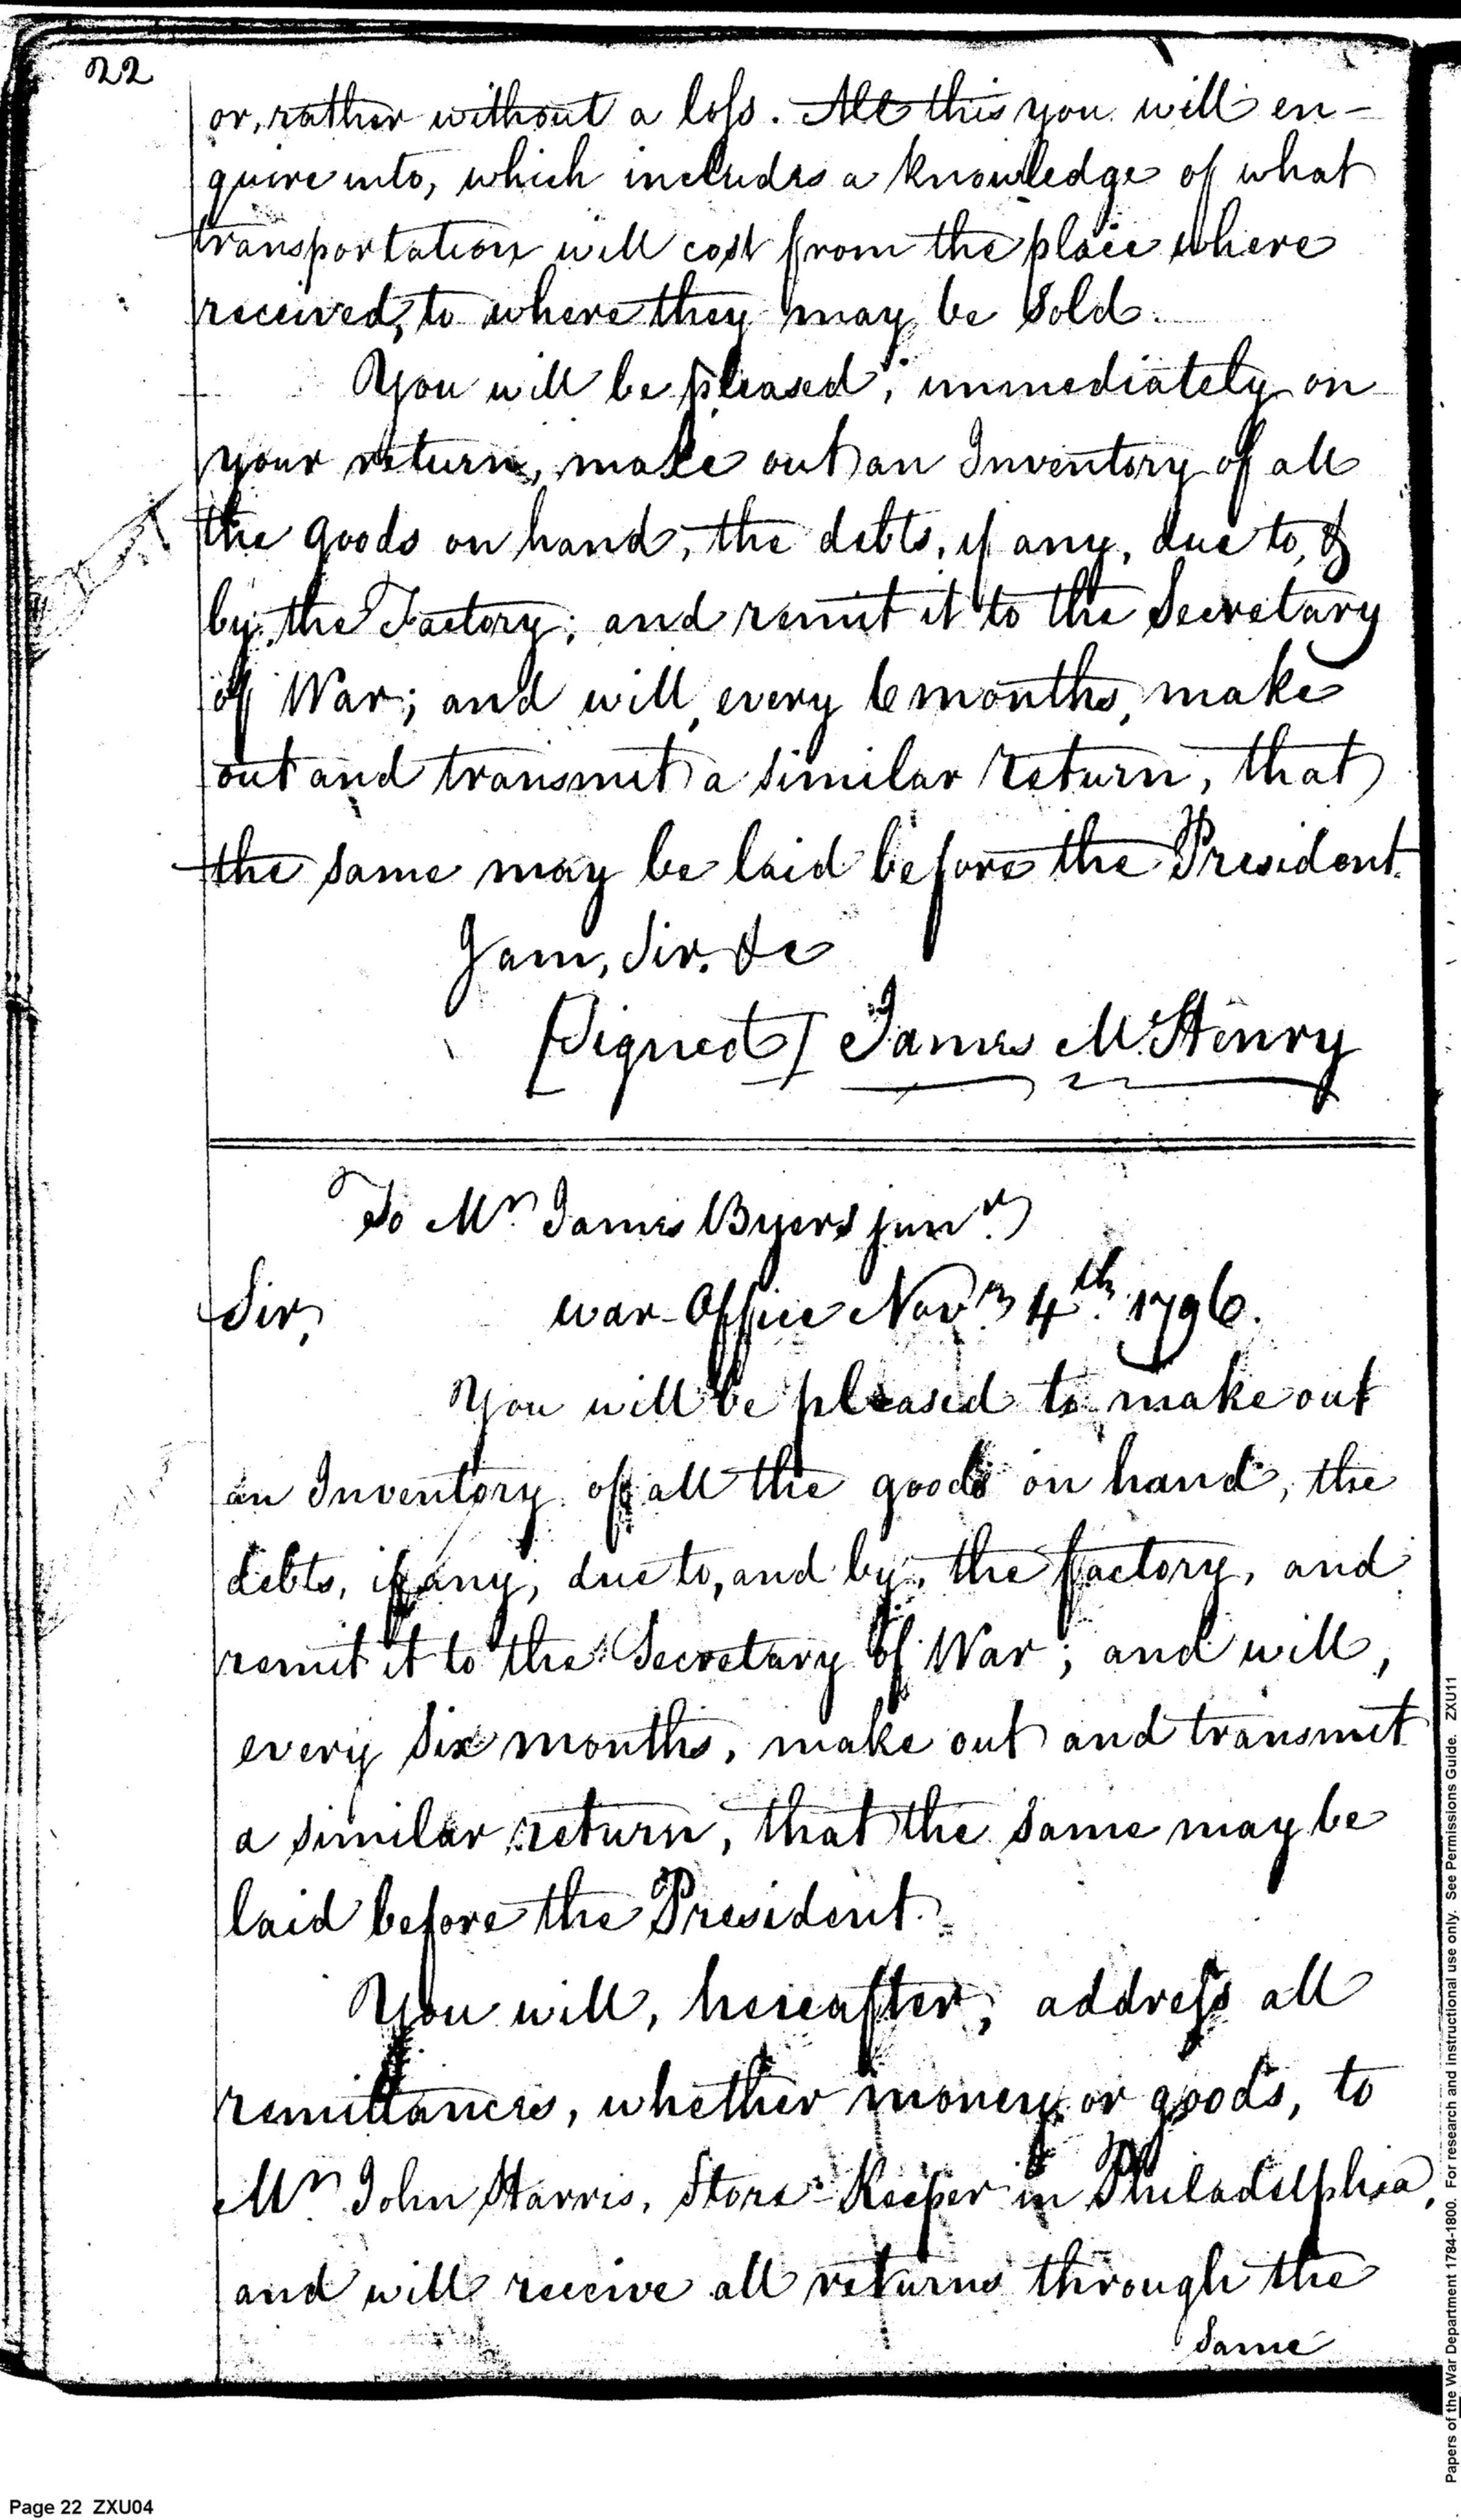 22
or, rather without a loss. All this you will en-
quire into, which includes a knowledge of what
transportation will cost from the place where
received, to where they may be sold.
You will be pleased, immediately on
your return, make out an Inventory of all
the goods on hand, the debts, if any, due to, &
by, the Factory; and remit it to the Secretary
of War; and will, every 6 months, make
out and transmit a similar return, that
the same may be laid before the President.
I am, Sir, &c
[Signed] James McHenry
To Mr. James Byers junr.
Sir, War-Office Novr. 4th. 1796.
You will be pleased to make out
an Inventory of all the goods on hand, the
debts, if any, due to, and by, the factory, and
remit it to the Secretary of War; and will,
every six months, make out and transmit
a similar return, that the same may be
laid before the President.
You will, hereafter, address all
remittances, whether money or goods, to
Mr. John Harris, Store-Keeper in Philadelphia,
and will receive all returns through the
same
Page 22 ZXU04
Papers of the War Department 1784-1800. For research and instructional use only. See Permissions Guide. ZXU11